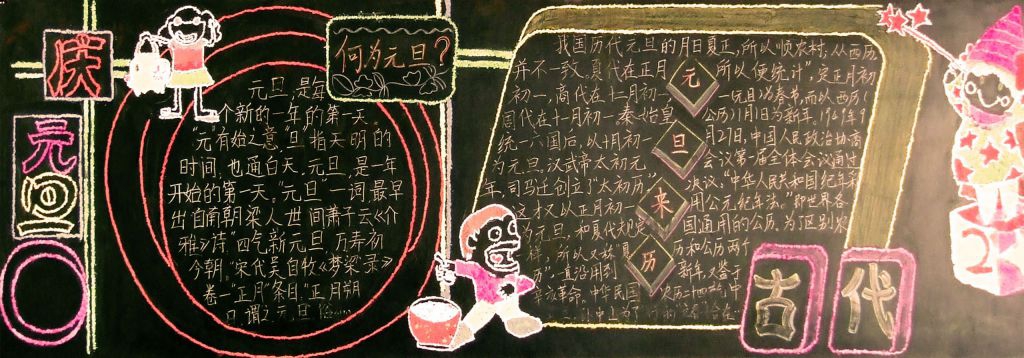 庆
元
旦
何为元旦?
元旦,是年
个新的一年的第一天
"元"有始之意"旦"指天明的
时间,也通白天,元旦,是一年
开始的第一天,"元旦"一词,最早
出自南朝梁人世间萧子云《介
雅》诗"四气新元旦,万寿初
今朝,"宋代吴自牧《梦梁录》
卷一"正月"条目"正月朔
日,谓之元旦
元
旦
来
历
我国历代元旦的月日
并不一致。夏代在正月
初一,商代在十二月初一
周代在十一月初一,秦始皇
统一六国后,以十月初一
为元旦,汉武帝太初元
年,司马迁创立了"太初历"
这才又以正月初一
为元旦,和夏代规定
样,所以又称"夏
历",一直沿用到
辛亥革命,中华民国
夏正,所以顺农村,从西历
所以便统计",定正月初
一元旦
公历1月1日为新年,
月27日,中国人民政治协商
会议第一届全体会议通过
决议,"中华人民共和国纪年采
用公元纪年法,"即世界各
国通用的公历,为了区别农
历和公历两个
新年,又鉴于
古代